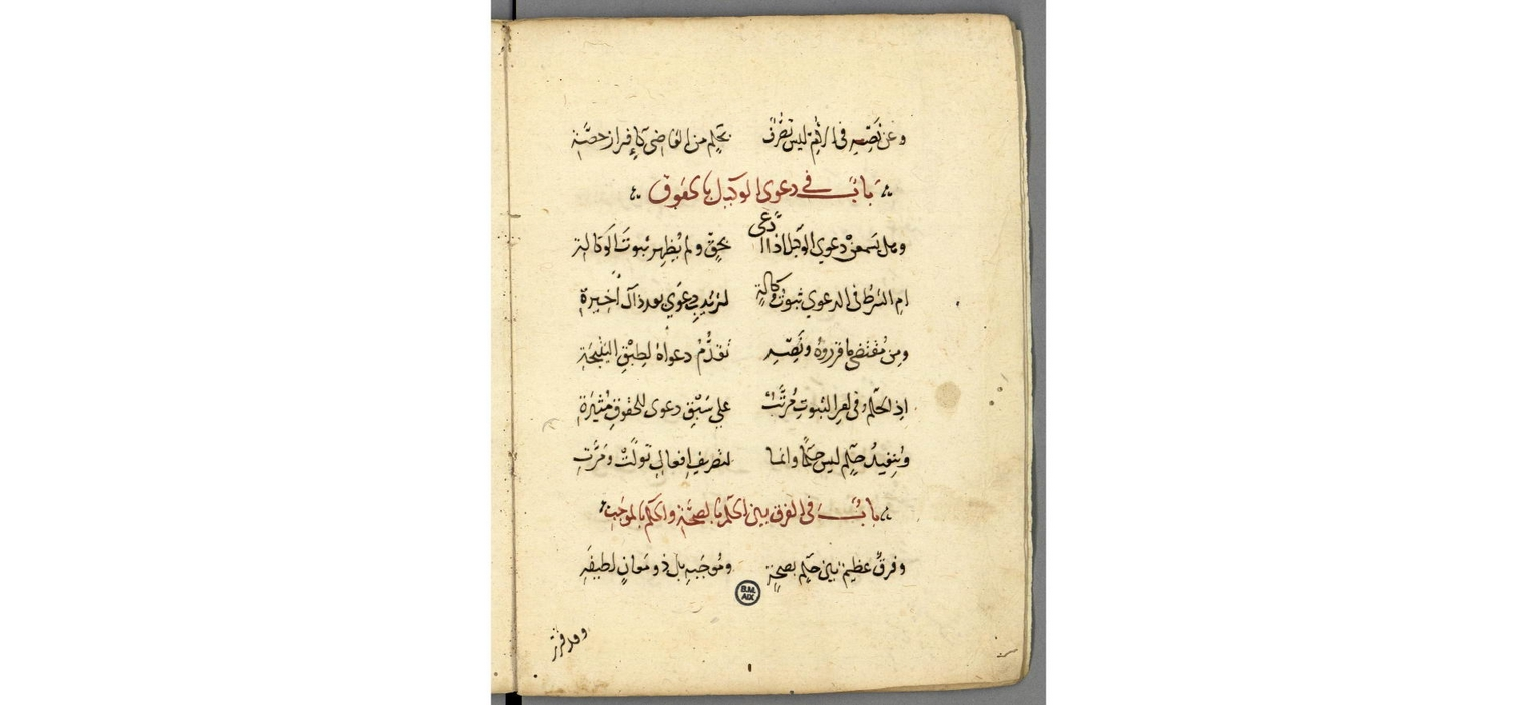 وعن نَصِّهِ في الأمّ ليس تصرُّف بحكمٍ من القاضي كإفراز حصَّةِ
بابٌ في دعوى الوكيل بالحقوق
وهل يَسمعنْ دعوي الوكيل إذا ادَّعى بحقٍّ ولم يُظهِر ثبوتَ الوَكالةِ
ام الشرطُ في الدعوي ثبوتُ وكالةٍ دعوَي بعد ذاك أخيرةِ
ومِن مُقتضَى ما قرروهُ ونَصِّهِ تقدُّمُ دعواهُ لِطِبْقِ النتيجةِ
اذِ الحكمُ في الثبوتِ مُرتَّبٌ علي سَبْقِ دعوى للحقوقِ مُثيرَةِ
وتنفيذُ حكمٍ ليس حُكمًا وانما لتصريفِ افعالٍ تولَّتْ ومَرَّتِ
بابٌ في الفرق بين الحكم بالصحَّة والحكم بالموجَب
وفرقٌ عظيمٌ بين حكمٍ بصحةٍ ومُوجَبهِ بل ذو مَعانٍ لطيفَةِ
B.M. AIX
وقد قرر